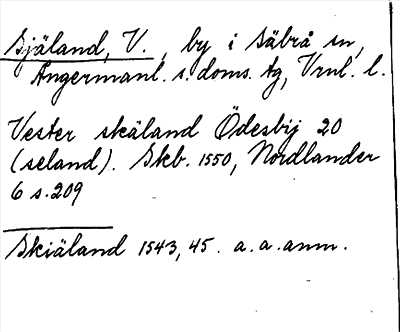 Själand, V., by i Säbrå sn,
Ångermanl. s. doms. tg, Vrnl. l.
Vester skäland Ödesbij 20
(seland). Skb. 1550, Nordlander
6 s. 209
Skiäland 1543, 45. a. a. anm.